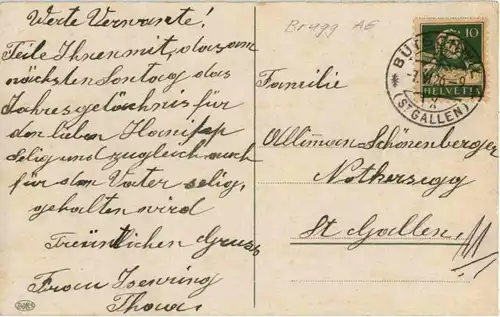 Werte Verwante!
Teile Ihnen mit, das am
nächsten Sontag das
Jahresgetächnis für
den lieben
selig und zugleich auch
für den Vater selig,
gehalten wird
Freüntlichen Gruss
Frau
Brugg AG
10
HELVETIA
(ST GALLEN)
Familie
Schönenberger
Notkersegg
St Gallen